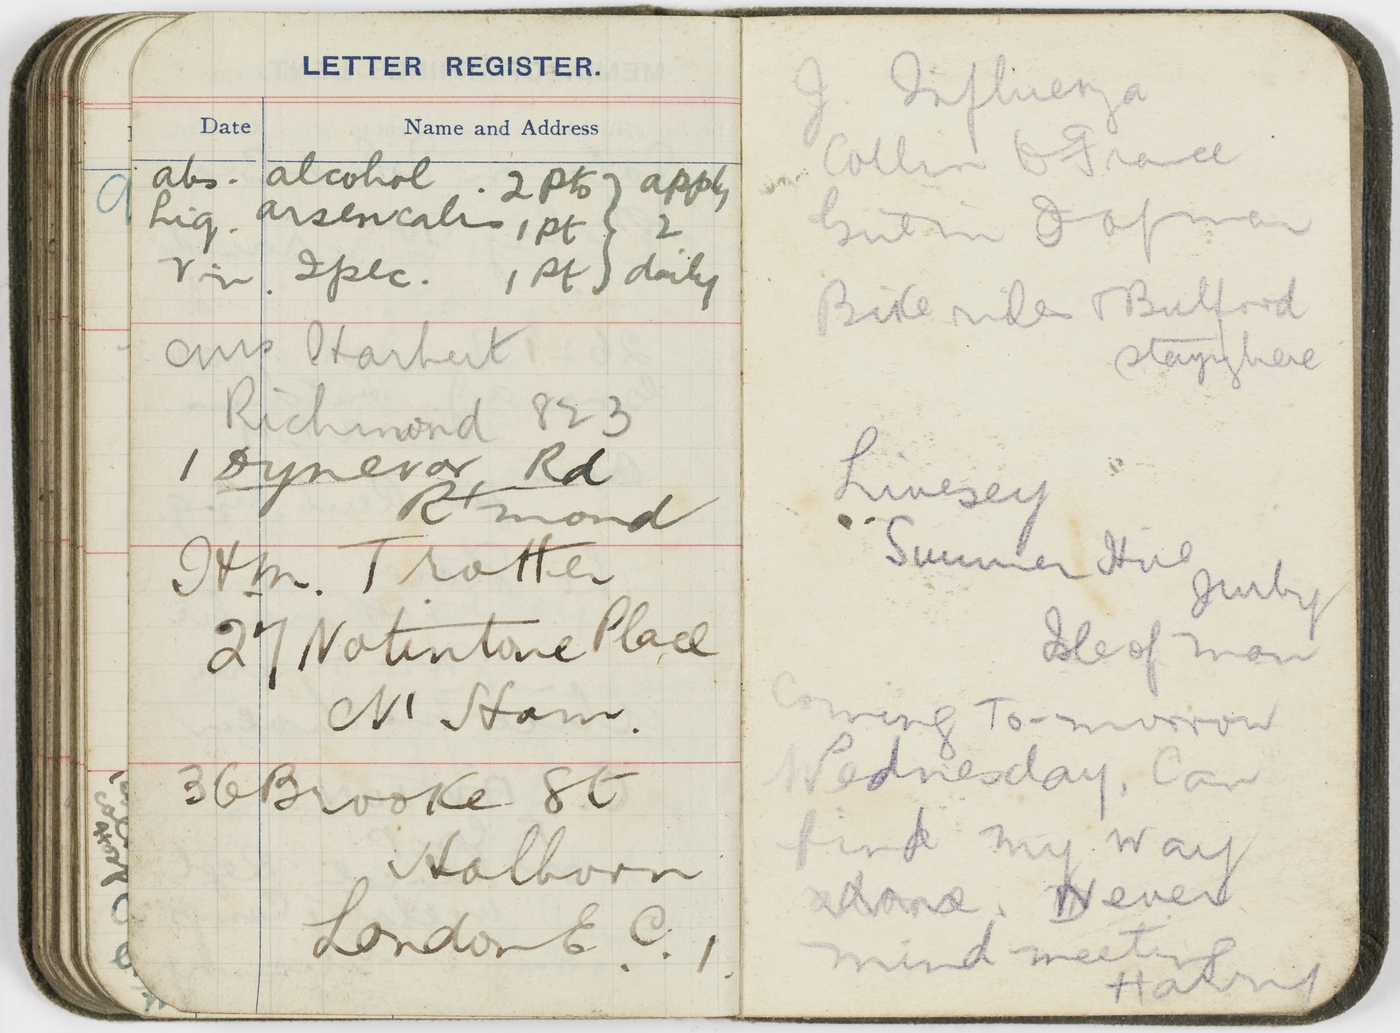 LETTER REGISTER.
Date Name and Address
abs. alcohol . 2 pts } apply
Liq. arsenicalis 1 pt } 2
Vin. Ipec. 1 pt } daily
Harbert
Richmond 823
1 Dynevor Rd
R'mond
Trotter
27 Notintone Place
Nt Ham.
36 Brooke St
Holborn
London E. C. 1.
J. Influenza
Collin &
Bike rides & Bulford
stay here
Livesey
Summer Hill
Jurby
Isle of Man
Coming To-morrow
Wednesday. Can
find my way
alone. Never
mind meeting
Harry